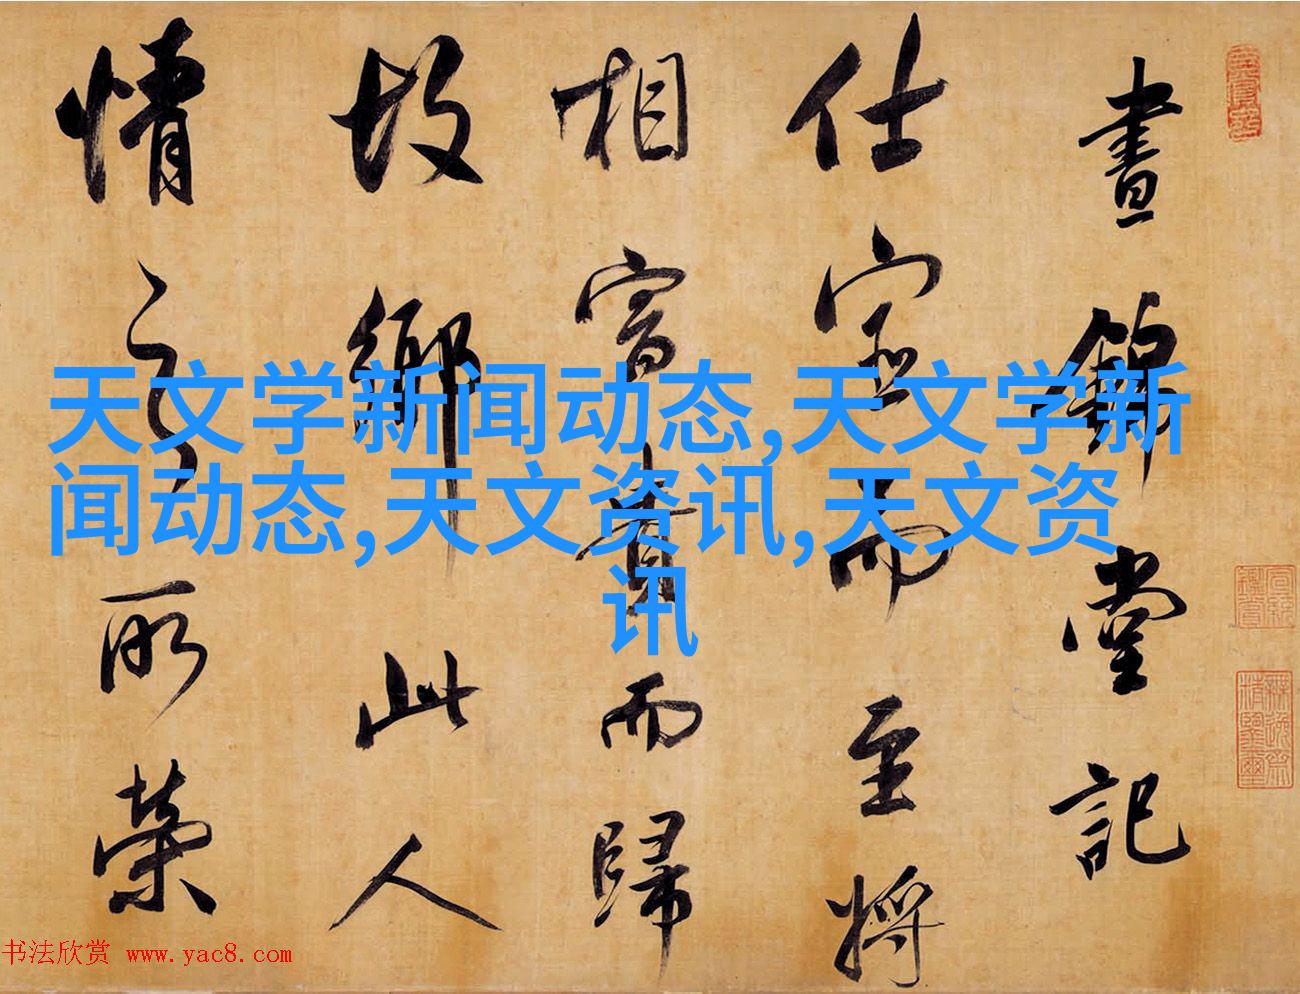 晝錦堂記
仕宦而至將
相富貴而歸
故鄉此人
情之所榮
天文学新闻动态,天文学新
闻动态,天文资讯,天文资
讯
书法欣赏 www.yac8.com